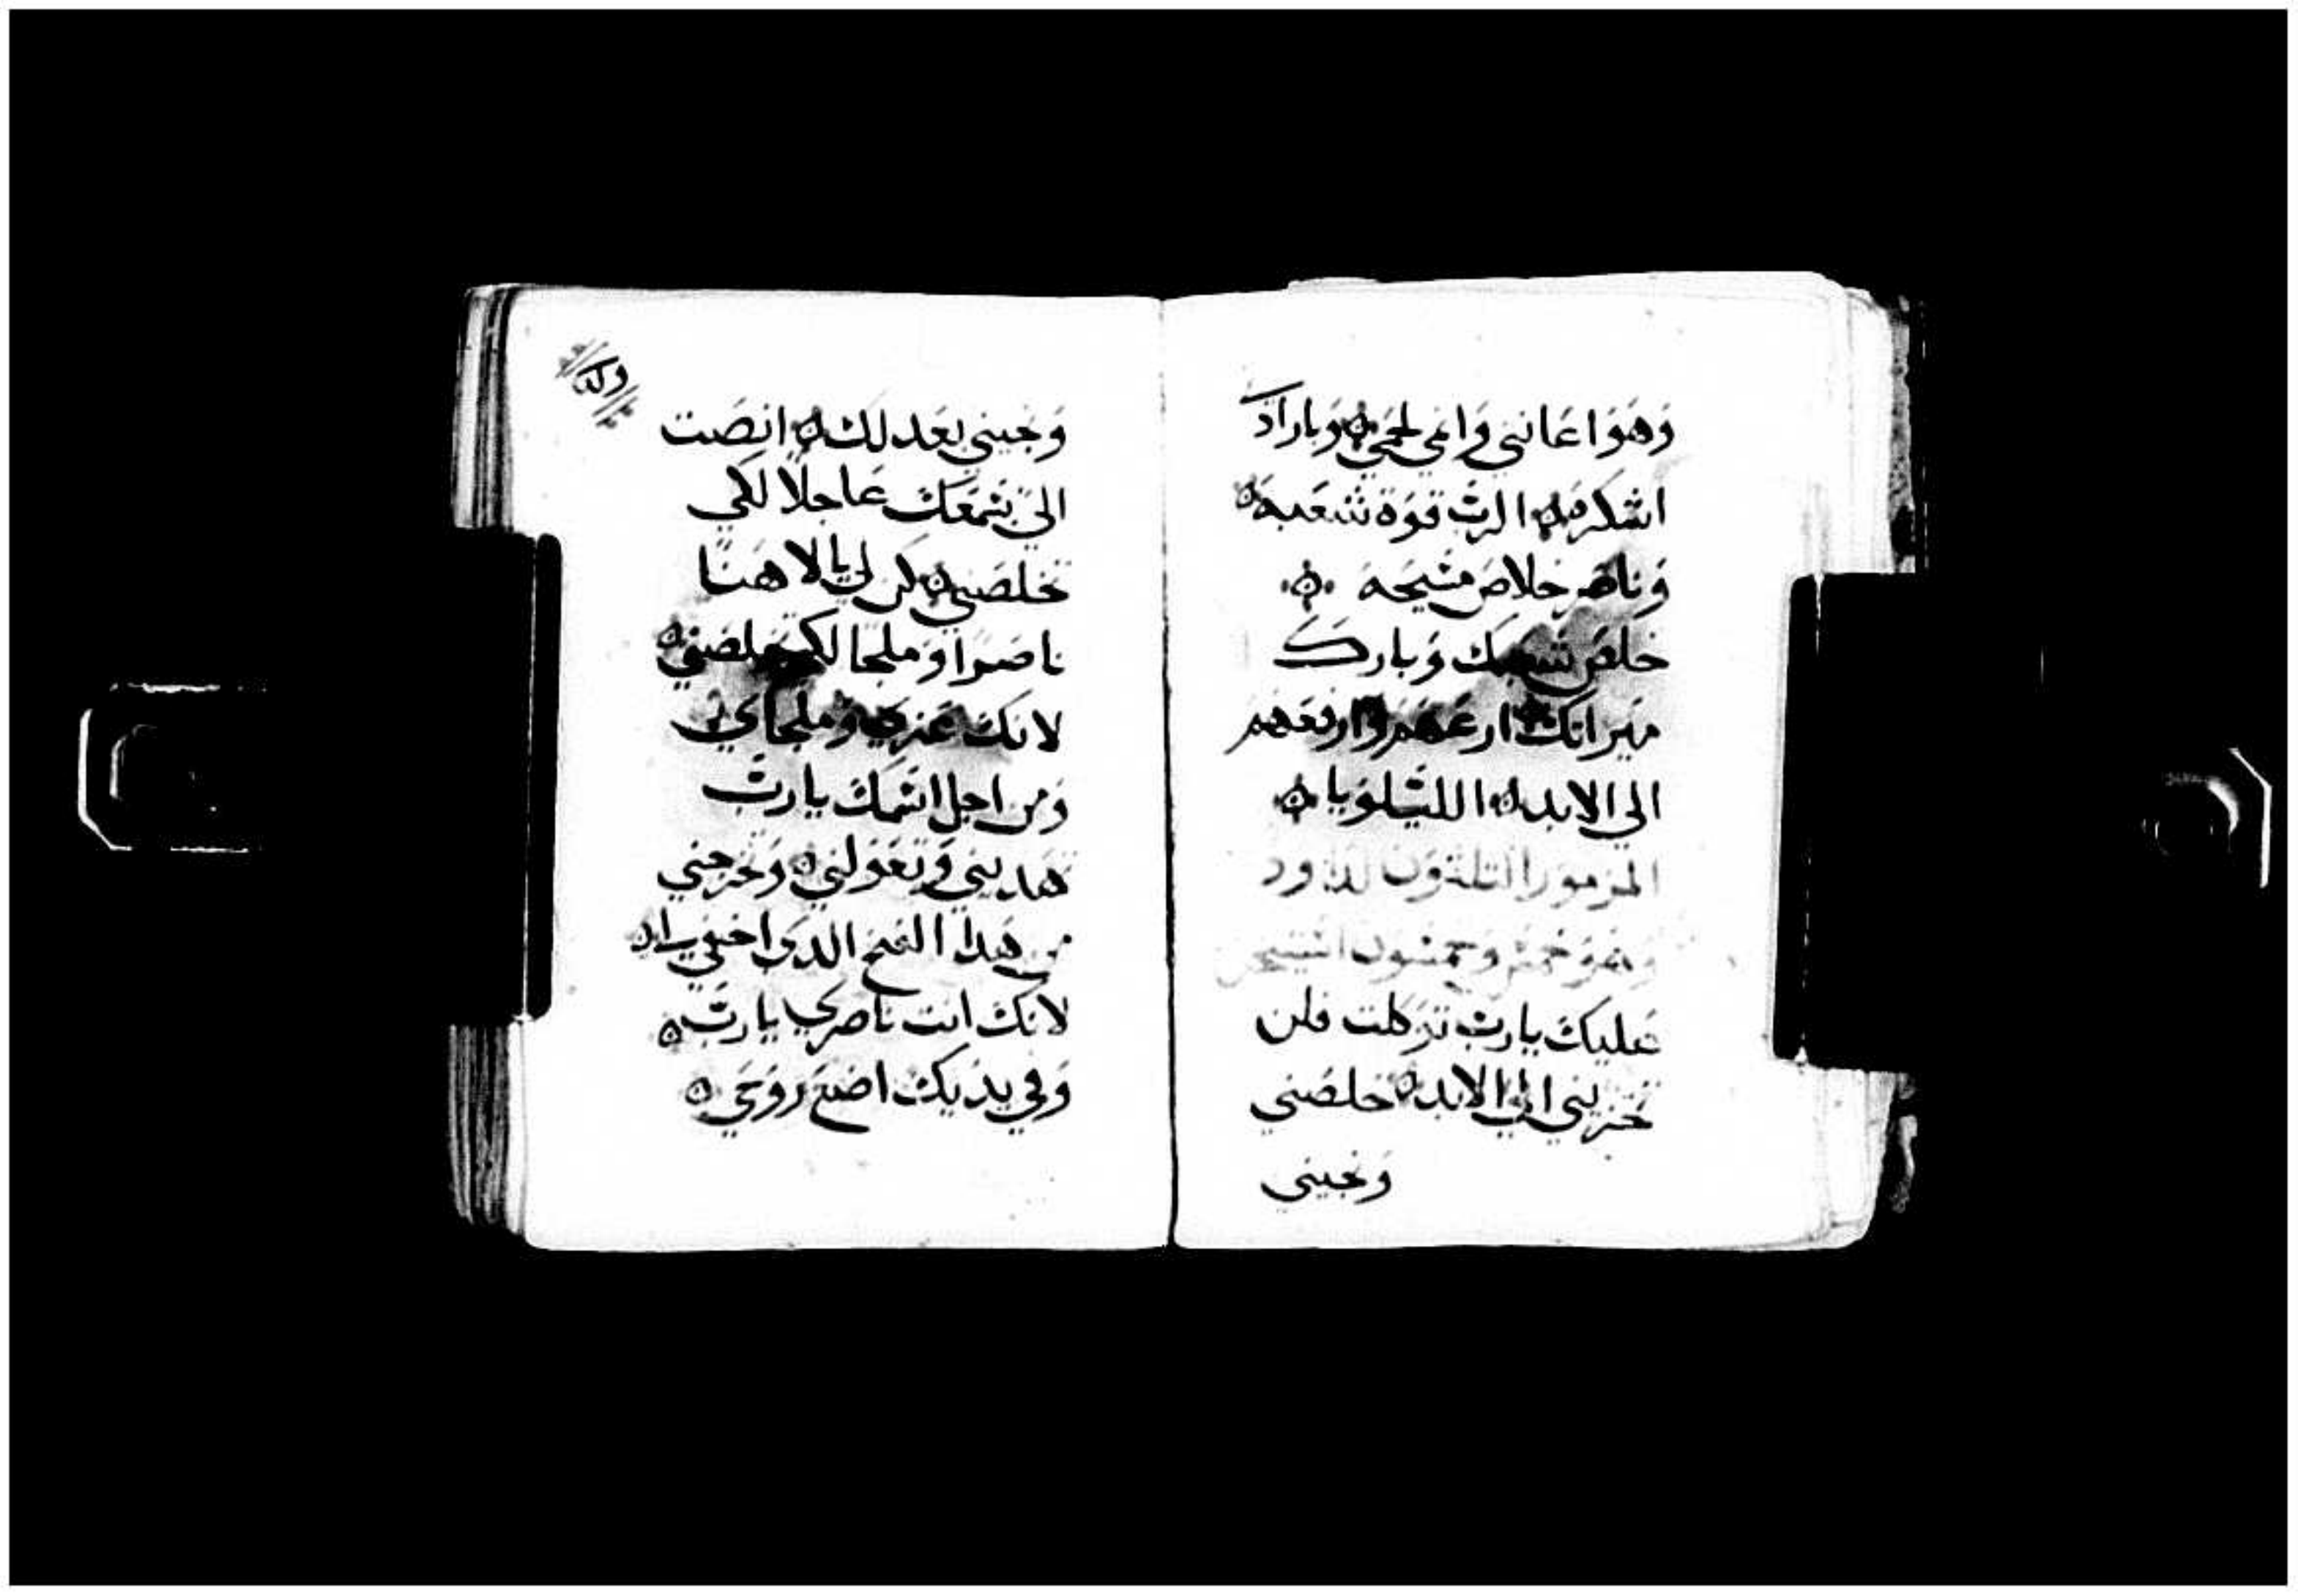 وَهوَ اعَانني وَانمي لحمَي ۞ وَباراد
اشكرهۥ ۞ الربّ قوَة شعَبه ۞
وَناصر خلاص مسَيحَه ۞
خلصَ شعبَك وَبارك
ميراثك ۞ ارعَهمَ وَارفعَهم
الي الابد ۞ اللَّيلوَيا ۞
المزمور التلتوَن لداوود
وهوَ خمسَه وخمسَون استيخن
عَليكَ يارب توَكلت فلن
تخزيني الي الابد ۞ خلصَني
وَنجيني
وَنجيني بعَدلك ۞ انصَت
اليَ بسَمعَكَ عَاجلا لكَي
تخلصَني ۞ كن لي يا الاهنَا
ناصرا وَملجا لكي تخلصَني ۞
لانكَ عَزي وَملجاي
وَمن اجل اسَمكَ ياربّ
تهديني وَتعَولني ۞ وَتخرجني
من هَدا الفخ الدىَ اخفي
لانكَ انت ناصري ياربّ ۞
وَفي يدَيك اضعَ روَحَي ۞